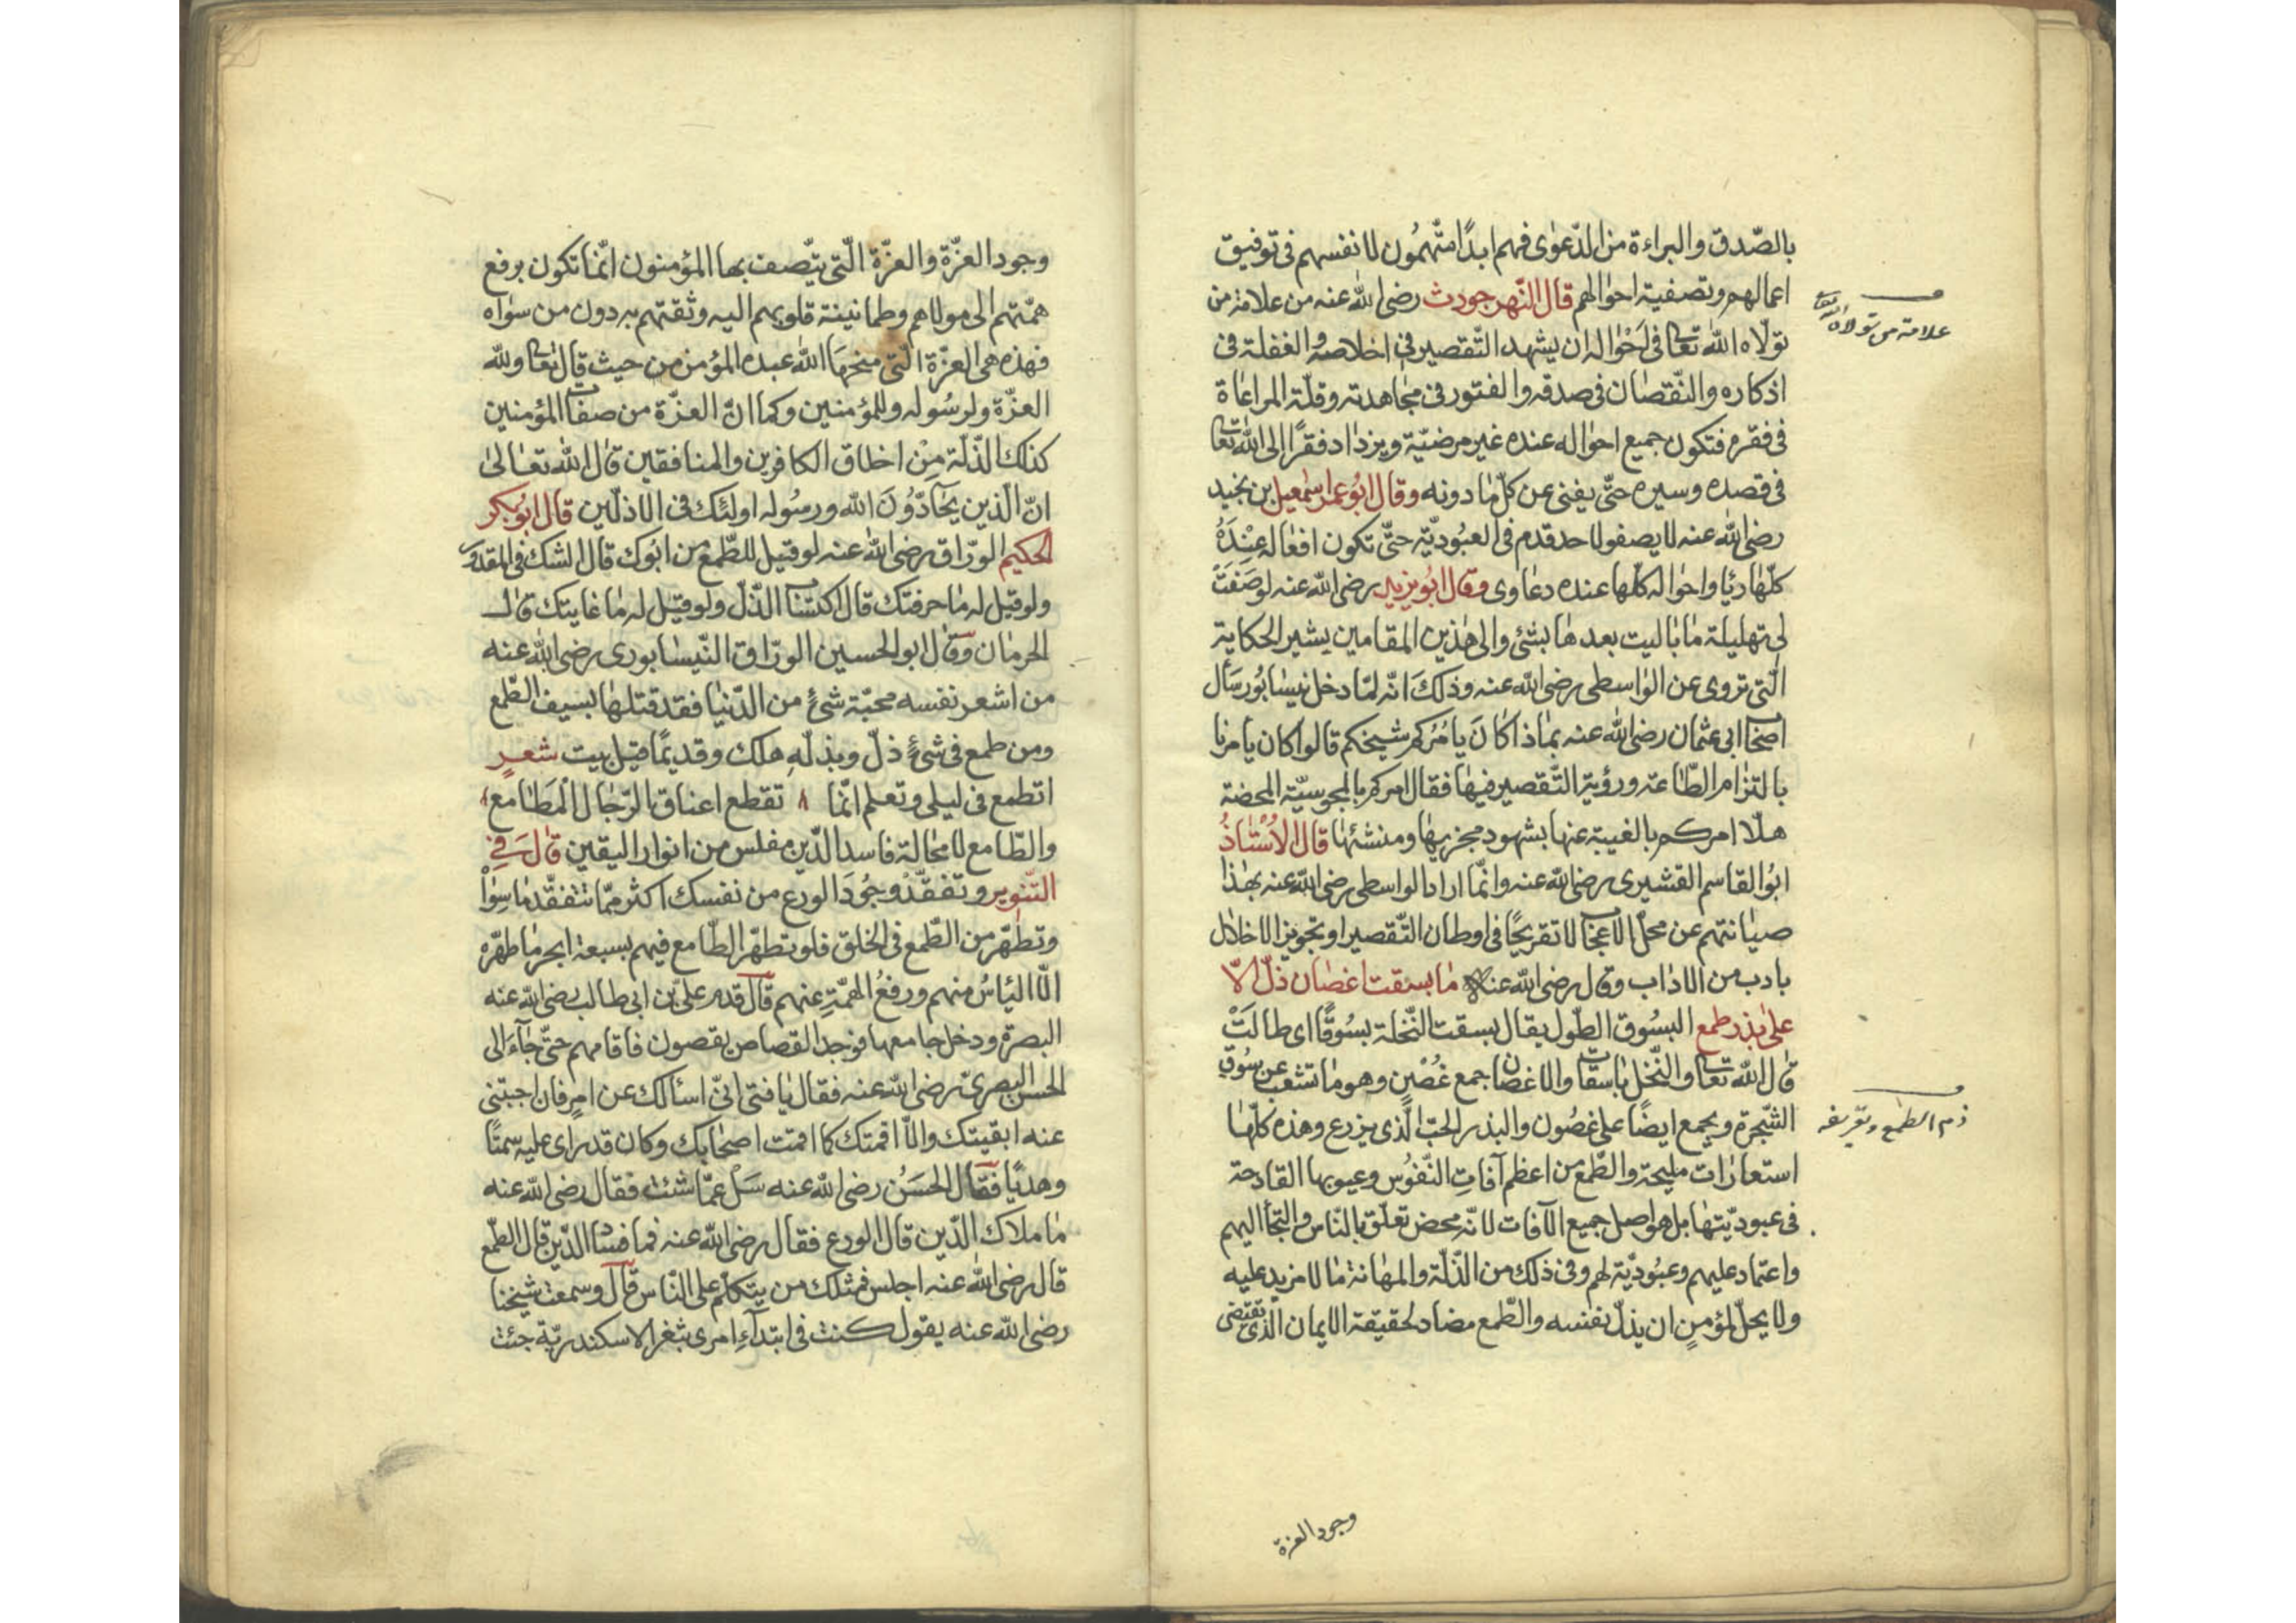 بالصّدق والبراءة من الدّعوٰى فهم ابدًا متّهمُون لانفسهم فى توفيق
اعمالهم وتصفية احوٰالهم قال النّهرجورى رضى الله عنه من علامة من
تولّاه الله تعالى فى اَحْوٰاله ان يشهد التّقصير فى اخلاصه والغفلة فى
اذكاره والنّقصٰان فى صدقه والفتور فى مجٰاهدته وقلّة المراعٰاة
فى فقره فتكون جميع احوٰاله عنده غير مرضيّة ويزدٰاد فقرًا الى الله تعالى
فى قصده وسيره حتّى يفنى عن كلّ مٰا دونه وقال ابُو عمرو اسمٰعيل بن نجيد
رضى الله عنه لا يصفو لاحد قدم فى العبُوديّة حتّى تكون افعٰاله عِنْدَهُ
كلّهٰا رئيا واحوٰاله كلّها عنده دعٰاوى وقٰال ابُو يزيد رضى الله عنه لو صَفَتْ
لى تهليلة مٰا بٰاليت بعدهٰا بشئ والى هٰذين المقامين يشير الحكاية
الّتى تروى عن الوٰاسطى رضى الله عنه وذلكَ انّه لمّا دخل نيسٰابُور سَأل
اصحٰاب ابى عثمان رضى الله عنه بمٰاذا كٰانَ يأمُركم شيخكم قالوا كان يأمرنا
بالتزٰام الطّاعة ورؤية التّقصير فيهٰا فقال امركم بالمجوسيّة المحضة
هلّا امركم بالغيبة عنها بشهود مجريهٰا ومنشئهٰا قال الاُسْتٰاذُ
ابُو القاسم القشيرى رضى الله عنه وانّما اراد الواسطى رضى الله عنه بهٰذا
صيٰانتهم عن محلّ الاعجٰاب لا تقريجًا فى اوطان التّقصير او تجويز الاخلٰال
بادب من الادٰاب وقال رضى الله عنه مٰا بسقت اغصٰان ذلّ الّا
علىٰ بذر طمع البسُوق الطّول يقال بسقت النّخلة بسُوقًا اى طالَتْ
قٰال الله تعالى والنّخل بٰاسقٰات والاغصٰان جمع غُصْنٍ وهو مٰا تشعب عن سُوق
الشّجرة ويجمع ايضًا على غصُون والبذر الحبّ الّذى يزرع وهذه كلّهٰا
استعارٰات مليحة والطّمع من اعظم آفاتِ النّفوُس وعيوبها القادحة
فى عبوديّتهٰا بل هو اصل جميع الآفات لانّه محض تعلّق بالنّاس والتجأ اليهم
واعتمٰاد عليهم وعبُوديّة لهم وفى ذلك من الذّلّة والمهٰانة مٰا لا مزيد عليه
ولا يحلّ لمؤمنٍ ان يذلّ نفسه والطّمع مضاد لحقيقة الايمان الّذى تقتضى
علامة من تولاه الله تعالى
ذم الطمع وتعريفه
وجود العزة
وجود العزّة والعزّة الّتى يتّصف بها المؤمنون انّمٰا تكون برفع
همّتهم الى مولاهم وطمانينة قلوبهم اليه وثقتهم به دون من سوٰاه
فهذه هى العزّة الّتى منحهَا الله عبده المؤمن من حيث قال تعالى ولله
العزّة ولرسُوله وللمؤمنين وكما انّ العزّة من صفات المؤمنين
كذلك الذّلّة مِنْ اخلاق الكافرين والمنافقين قٰال الله تعٰالىٰ
انّ الّذين يحٰآدّوُنَ الله ورسُوله اولئك فى الاذلّين قال ابُو بكر
الحكيم الورّاق رضى الله عنه لو قيل للطّمع من ابُوك قال الشك فى المقدور
ولو قيل له مٰا حرفتك قال اكتسٰاب الذّلّ ولو قيل له مٰا غايتك قال
الحرمٰان وقٰال ابو الحسين الورّاق النّيسٰابورى رضى الله عنه
من اشعر نفسه محبّة شئ من الدّنيٰا فقد قتلهٰا بسيف الطّمع
ومن طمع فى شئٍ ذلّ وبذلّهِ هلك وقديمًا قيل بيت شعر
اتطمع فى ليلى وتعلم انّمٰا تقطع اعناق الرّجٰال المَطٰامع
والطّامع لا محٰالة فاسد الدّين مفلس من انوار اليقين قٰالَ فى
التّنوير وتفقّدْ وجُودَ الورع من نفسك اكثر ممّا تتفقّد مٰا سِوٰاْ
وتطهّر من الطّمع فى الخلق فلو تطهّر الطّامع فيهم بسبعة ابحر مٰا طهّره
الّا اليٰاسُ منهم ورفعُ الهمّةِ عنهم قٰال قدم علىّ بن ابى طالب رضى الله عنه
البصرة ودخل جٰامعها فوجد القصاص يقصون فاقامهم حتّى جٰآءَ الى
الحسن البصرىّ رضى الله عنه فقال يٰا فتى انّى اسئالك عن امر فان اجبتنى
عنه ابقيتك والاّ اقمتك كما اقمت اصحٰابك وكان قد راى عليه سمتًا
وهديًا فقٰال الحسَنُ رضى الله عنه سَلْ عمّا شئت فقال رضى الله عنه
مٰا ملاك الدّين قال الورع فقال رضى الله عنه فمٰا فسٰاد الدّين قٰال الطّمع
قال رضى الله عنه اجلس فمثلك من يتكلّم على النّاس قٰال وسمعت شيخنا
رضى الله عنه يقول كنت فى ابتدآءِ امرى بثغر الاسكندريّة جئت